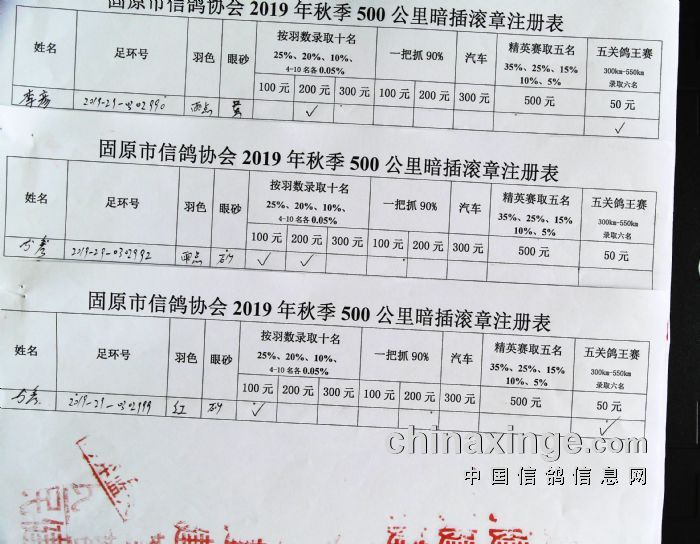 固原市信鸽协会 2019 年秋季 500 公里暗插滚章注册表
姓名 足环号 羽色 眼砂 按羽数录取十名 25%、20%、10%、 4-10 名各 0.05% 一把抓 90% 汽车 精英赛取五名 35%、25%、15% 10%、5% 五关鸽王赛 300km-550km 录取六名
100 元 200 元 300 元 100 元 200 元 300 元 500 元 50 元
2019-29-0302990 雨点 ✓ ✓
固原市信鸽协会 2019 年秋季 500 公里暗插滚章注册表
姓名 足环号 羽色 眼砂 按羽数录取十名 25%、20%、10%、 4-10 名各 0.05% 一把抓 90% 汽车 精英赛取五名 35%、25%、15% 10%、5% 五关鸽王赛 300km-550km 录取六名
100 元 200 元 300 元 100 元 200 元 300 元 500 元 50 元
2019-29-0302992 雨点 砂 ✓ ✓
固原市信鸽协会 2019 年秋季 500 公里暗插滚章注册表
姓名 足环号 羽色 眼砂 按羽数录取十名 25%、20%、10%、 4-10 名各 0.05% 一把抓 90% 汽车 精英赛取五名 35%、25%、15% 10%、5% 五关鸽王赛 300km-550km 录取六名
100 元 200 元 300 元 100 元 200 元 300 元 500 元 50 元
2019-29-0302999 红 砂 ✓ ✓
chinaxinge.com
中国信鸽信息网